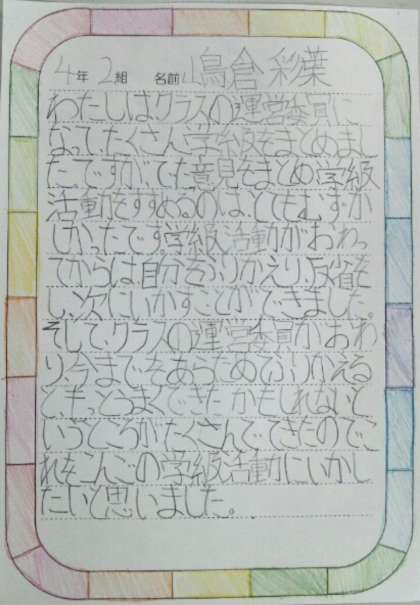 4年 2組 名前 鳥倉彩葉
わたしはクラスの運営委員に
なって、たくさん学級をまとめまし
た。ですが、でも意見をまとめ学級
活動をすすめるのは、とてもむずか
しかったです。学級活動がおわっ
てからは自分をふりかえり、反省を
し、次にいかすことができました。
そして、クラスの運営委員がおわ
り、今までをあらためふりかえる
と、もっとうまくできたかもしれないと
いうところがたくさんでてきたのでこ
れをこんごの学級活動にいかし
たいと思いました。